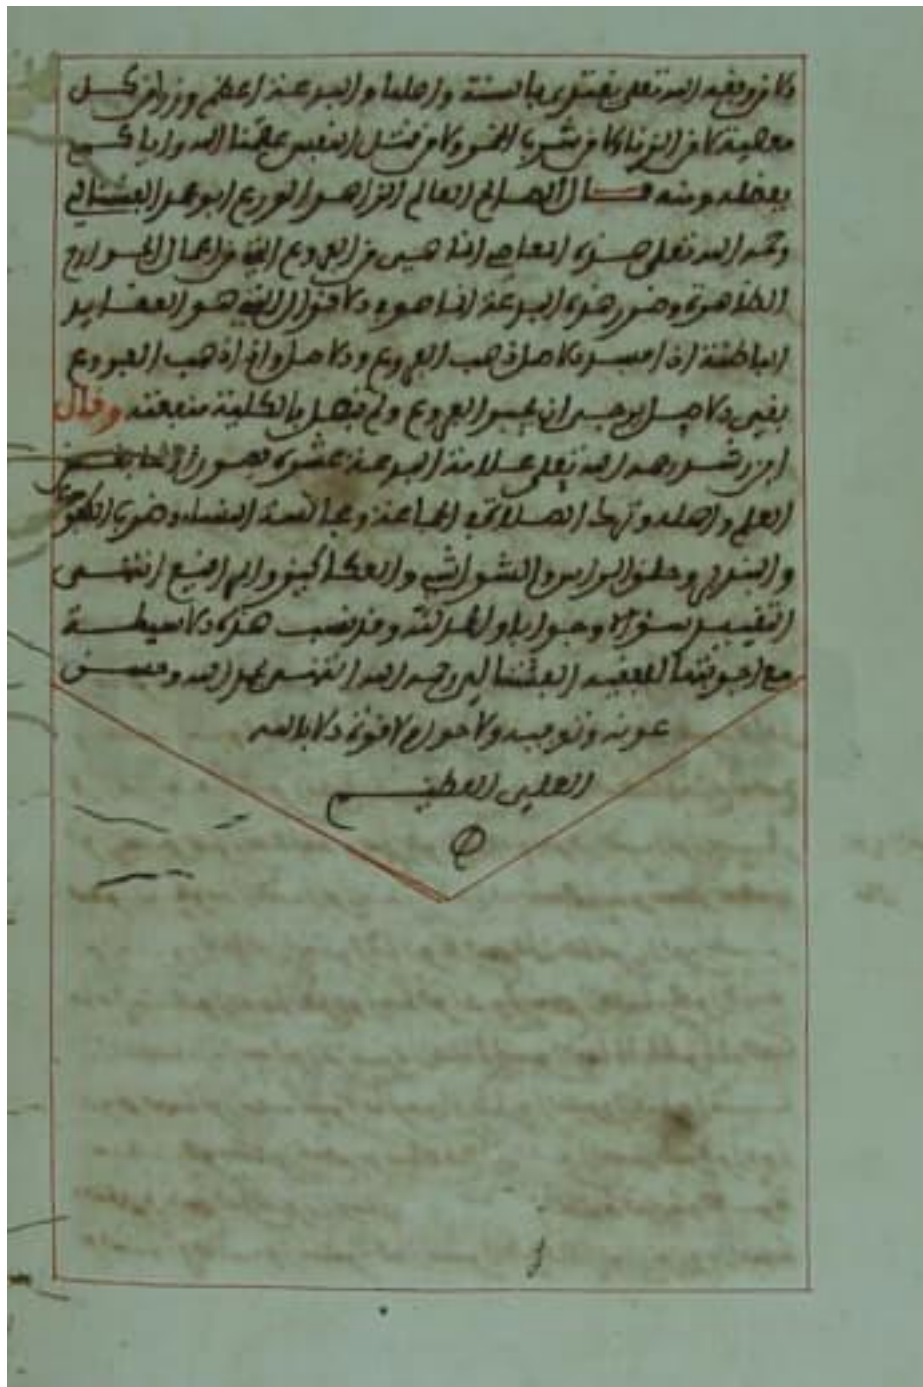 الله تعلى يقتدى بالسنة واهلها والبدعة اعظم وزرا من كل
معصية كا من الزنا وكا من شرب الخمر وكا من قتل النفس عصمنا الله واياكم
بفضله ومنه قال الصالح العالم الزاهد الورع ابو عمر الفشتالي
رحمه الله تعلى هذه المعاصي انما هي من الفروع التي من اعمال الجوارح
الظاهرة وضرر هذه البدعة انما هو في الاقوال التي هو العقايد
الباطنة اذا فسد الاصل ذهب الفروع والاصل واذا ذهب الفروع
بقي الاصل يوجب ان يجبر الفروع ولم تبطل بالكلية منفعته وقال
ابن رشد رحمه الله تعلى علامة البدعة عشرة
العلم واهله وترك الصلاة في الجماعة ومجالسة النساء وضرب
وحلق الراس والشوارب والعكاكيز انتهى
التقييد سؤالا وجوابا والحمد لله وقد نصب هذه الاسيلة
مع اجوبتها للفقيه الفشتالي رحمه الله انتهى بحمد الله وحسن
عونه وتوفيقه ولا حول ولا قوة الا بالله
العلي العظيم